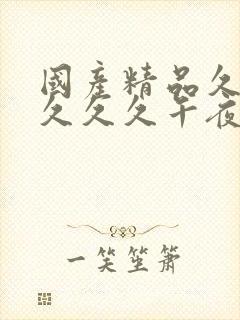 國產精品久
久久久午夜
一笑笙箫